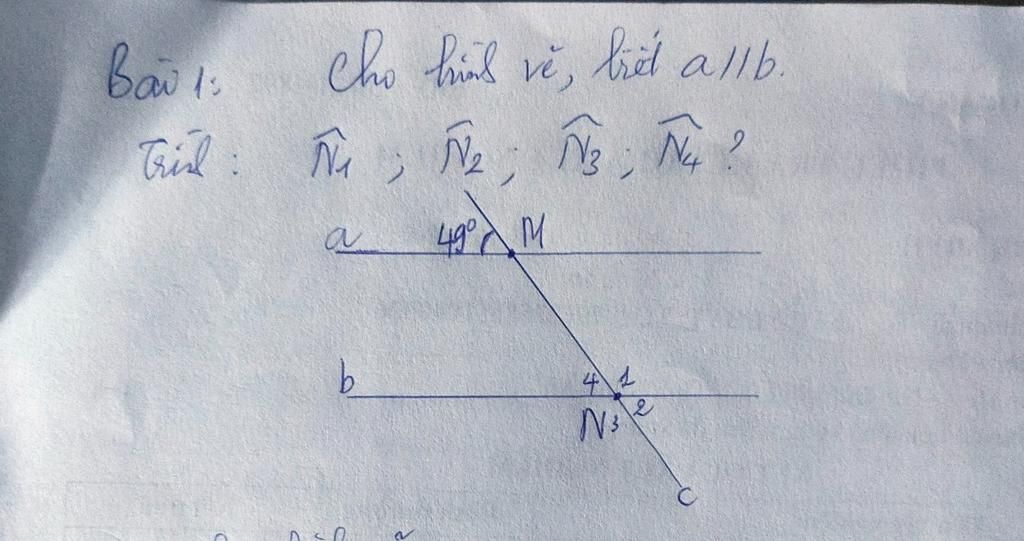 Bài 1: Cho hình vẽ, biết a//b.
Tính: N̂1 ; N̂2 ; N̂3 ; N̂4 ?
a 49° M
b 4 1
N 3 2
c